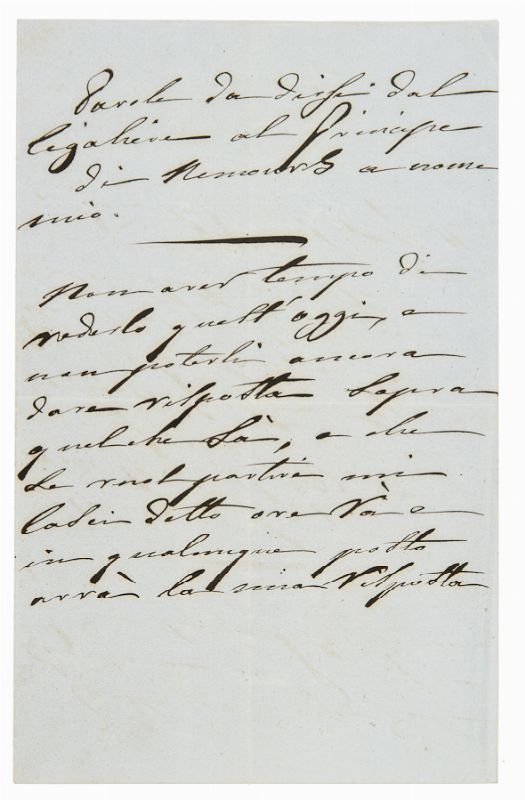 Parole da dirsi dal
al Principe
di Nemours a nome
mio.
Non aver tempo di
vederlo quest'oggi, e
non poterli ancora
dare risposta sopra
quel che sà, e che
se vuol partire mi
lasci detto ove và e
in qualunque posto
avrà la mia risposta